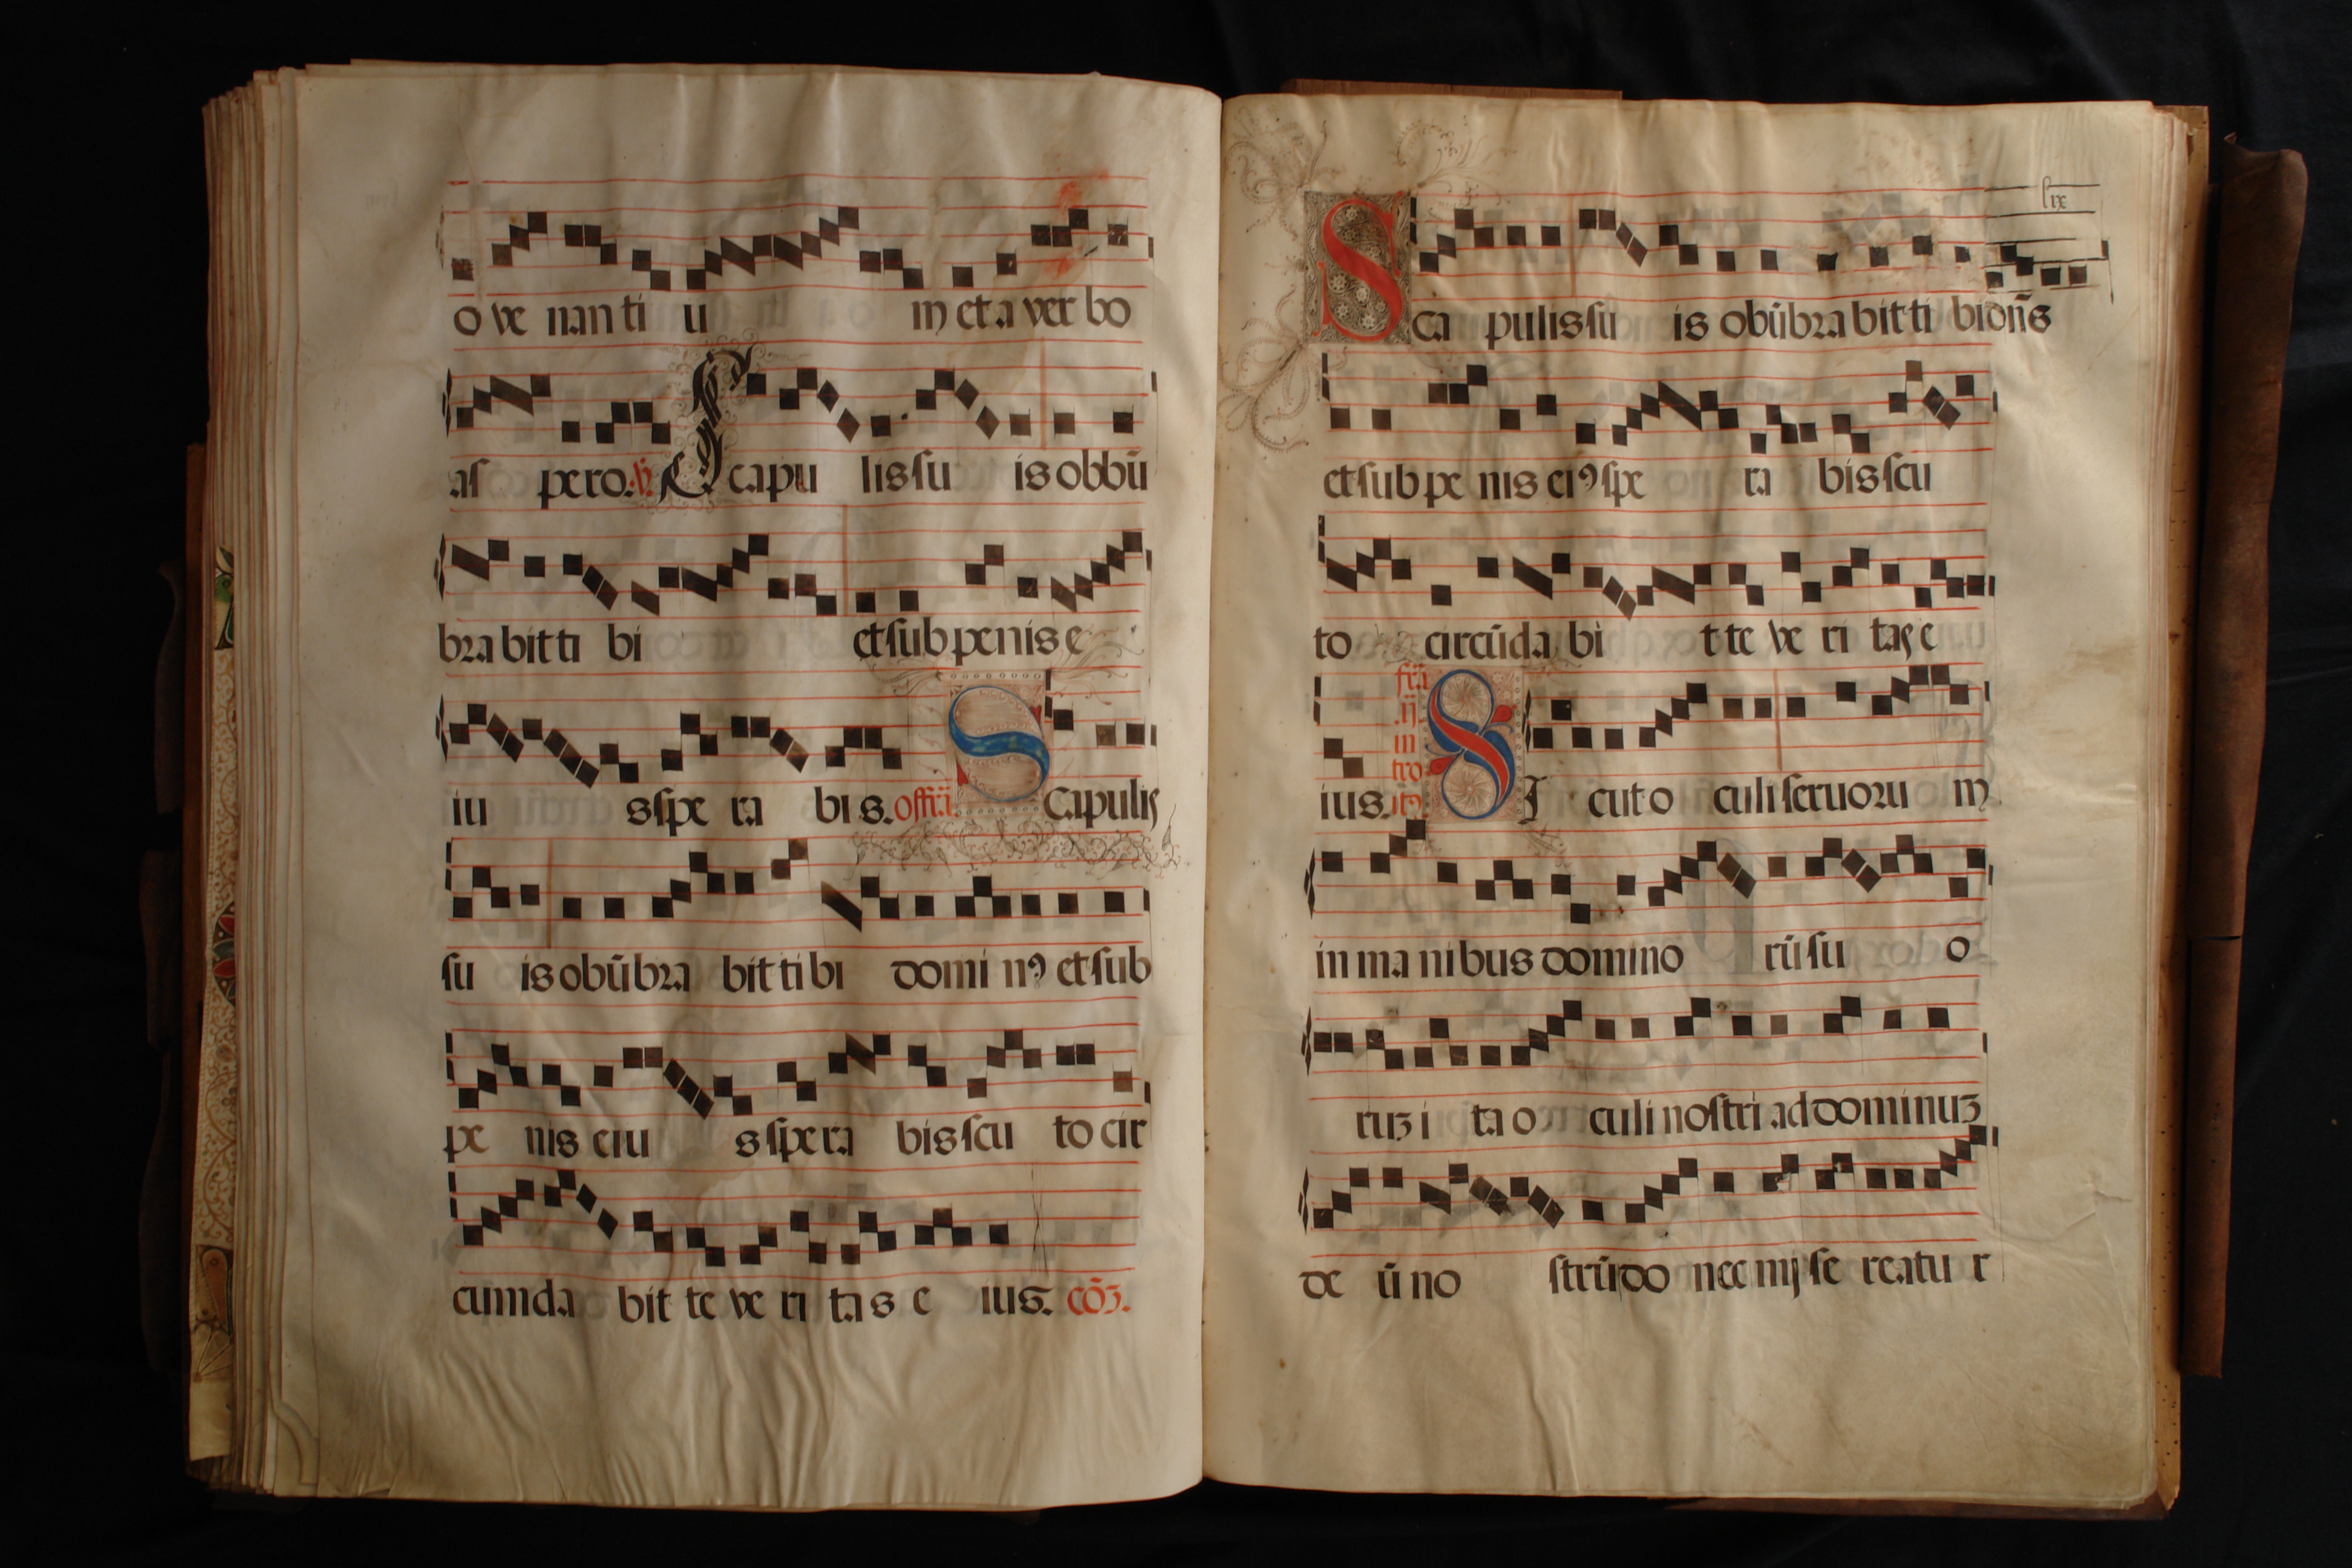 o ve nan ti u m et a ver bo
as pe ro. ℣. Scapu lis su is obbū
bra bit ti bi et sub penis e
iu s spe ra bi s. offā. Scapulis
su is obūbra bit ti bi domi nꝰ et sub
pe nis eiu s spe ra bis scu to cir
cumda bit te ve ri ta s e ius. cōꝫ.
lix
Sca pulis su is obūbra bit ti bi dn̄s
et sub pe nis eiꝰ spe ra bis scu
to circūda bi t te ve ri tas e
ius. frā .ij. in tro itꝰ. SI cut o culi seruoru m
in ma nibus domino rū su o
ruꝫ i ta o culi nostri ad dominuꝫ
de ū no strū do nec mise reatu r